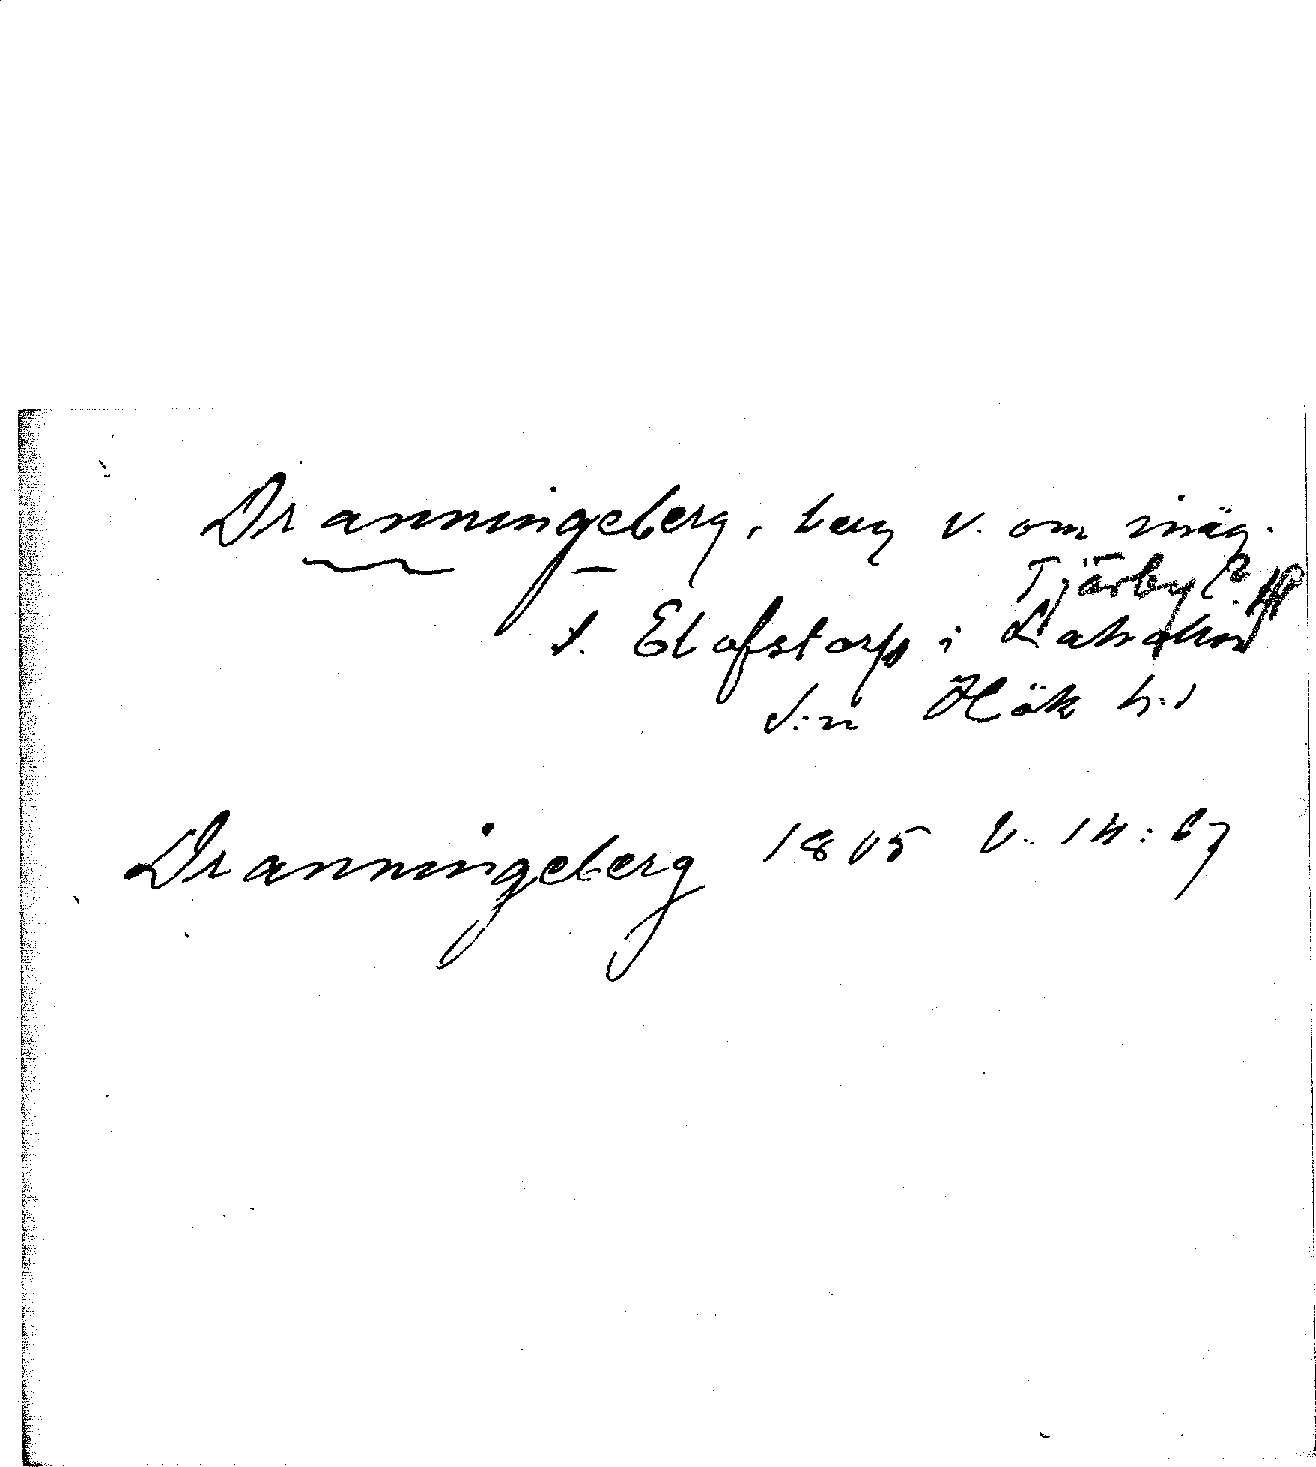 Dranningeberg, berg v. om inäg.
Tjärby?
t. Elofstorp i Laholm
s:n Hök h:d
Dranningeberg 1805 V. 14:67